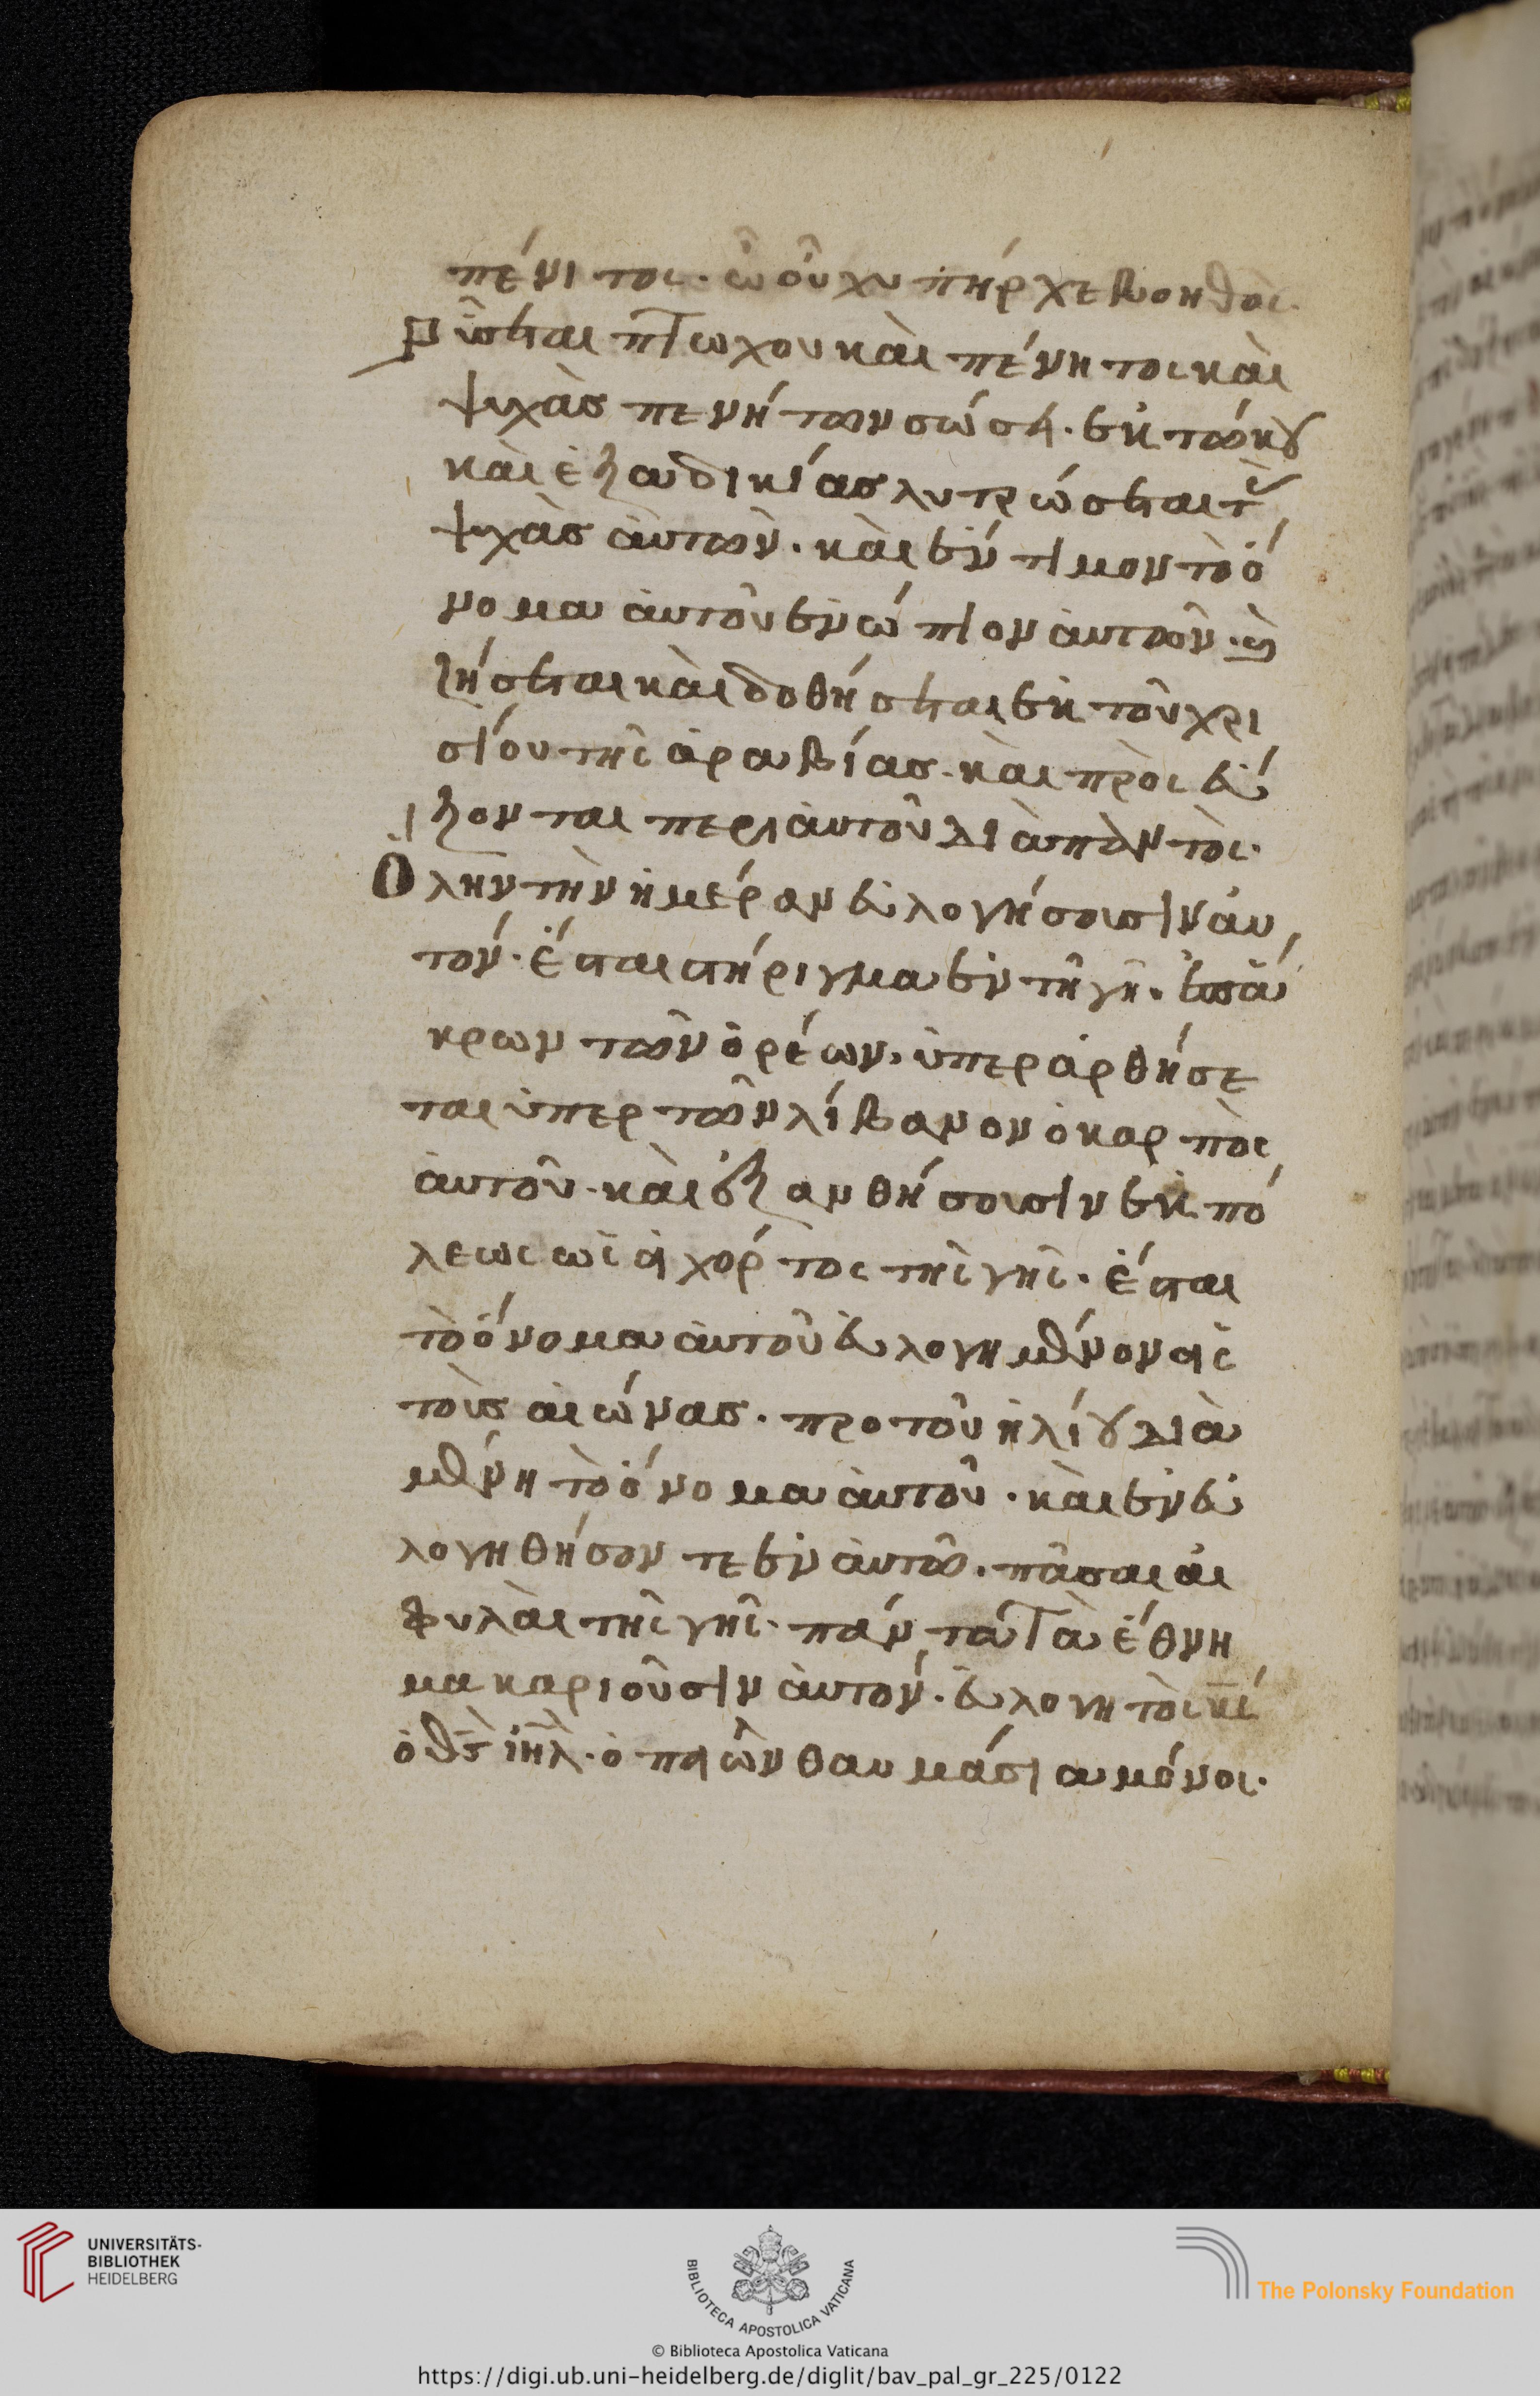 πένιτος. ὧ οὐχ ὑπήρχε βοηθός.
Ρύσεται πτωχου καὶ πένητος καὶ
ψυχὰς πενήτων σώσει. ἐκ τόκου
καὶ ἐξ αδικίας λυτρώσεται τ
ψυχὰς ἀυτῶν. καὶ ἔντιμον τὸ ὄ
νομα ἀυτοῦ ἐνώπιον ἀυτῶν. καὶ
ζήσεται καὶ δοθήσεται ἐκ τοῦ χρι
σίου τῆς ἀραβίας. καὶ πρὸς ἐύ
ξονται περι ἀυτοῦ διὰ παντὸς.
Ὅλην τὴν ἡμέραν ἐυλογήσουσιν ἀυ
τόν. ἔσται στήριγμα ἐν τῇ γῇ. ἐπ ἄ
κρων τῶν ὀρέων. ὑπερ ἀρθήσε
ται ὑπερ τῶν λίβανον ὁ καρπὸς
ἀυτοῦ. καὶ ἐξανθήσουσιν ἐκ πό
λεως ὡσεὶ χόρτος τῆς γῆς. ἔσται
τὸ ὄνομα ἀυτοῦ ἐυλογημένον εἰς
τοὺς αἰώνας. προ τοῦ ἡλίου διὰ
μένη τὸ ὄνομα ἀυτοῦ. καὶ ἐν ἐυ
λογηθήσονται ἐν ἀυτῶ. πᾶσαι αἱ
φυλὰι τῆς γῆς. πάντα τὰ ἔθνη
μακαριοῦσιν ἀυτόν. ἐυλογητὸς κς
ὁ θς ιηλ. ὁ ποιῶν θαυμάσια μόνος.
UNIVERSITÄTS-
BIBLIOTHEK
HEIDELBERG
BIBLIOTECA APOSTOLICA VATICANA
The Polonsky Foundation
© Biblioteca Apostolica Vaticana
https://digi.ub.uni-heidelberg.de/diglit/bav_pal_gr_225/0122